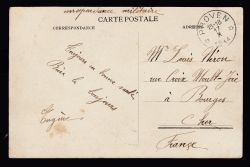 Correspondance militaire
CARTE POSTALE
CORRESPONDANCE
ADRESSE
PROVEN
Toujours en bonne santé
Bien le bonjour
Eugène
Mr Louis
rue Croix Moult-Joie
à Bourges
Cher
France